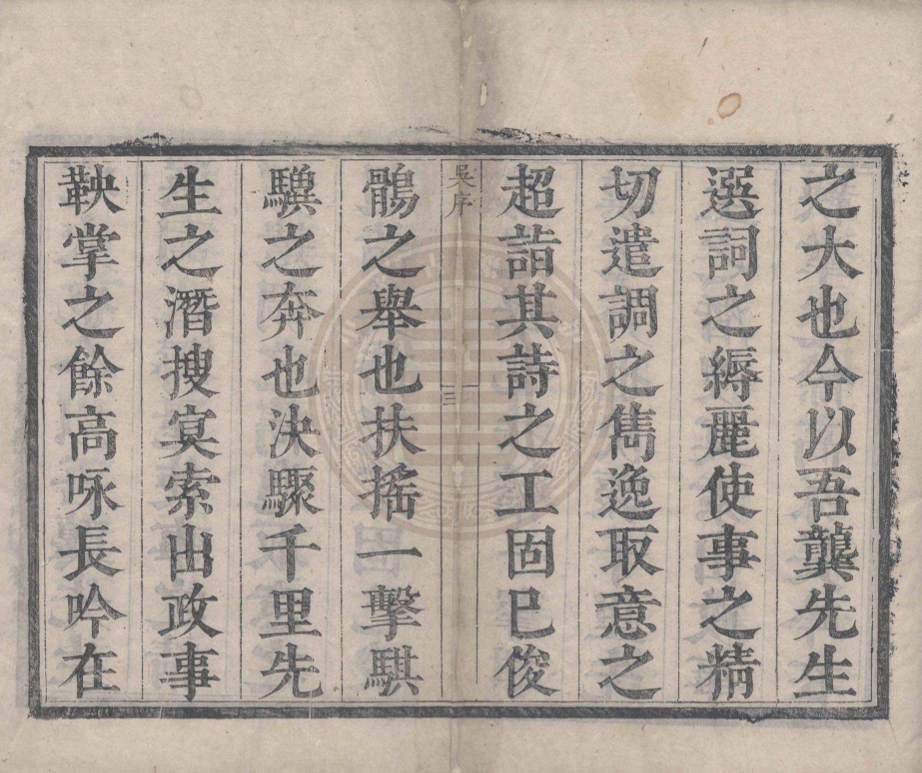 之大也今以吾龔先生
選詞之縟麗使事之精
切遣調之雋逸取意之
超詣其詩之工固已俊
吳序
三
鶻之舉也扶搖一擊騏
驥之奔也決驟千里先
生之潛搜冥索出政事
鞅掌之餘高咏長吟在